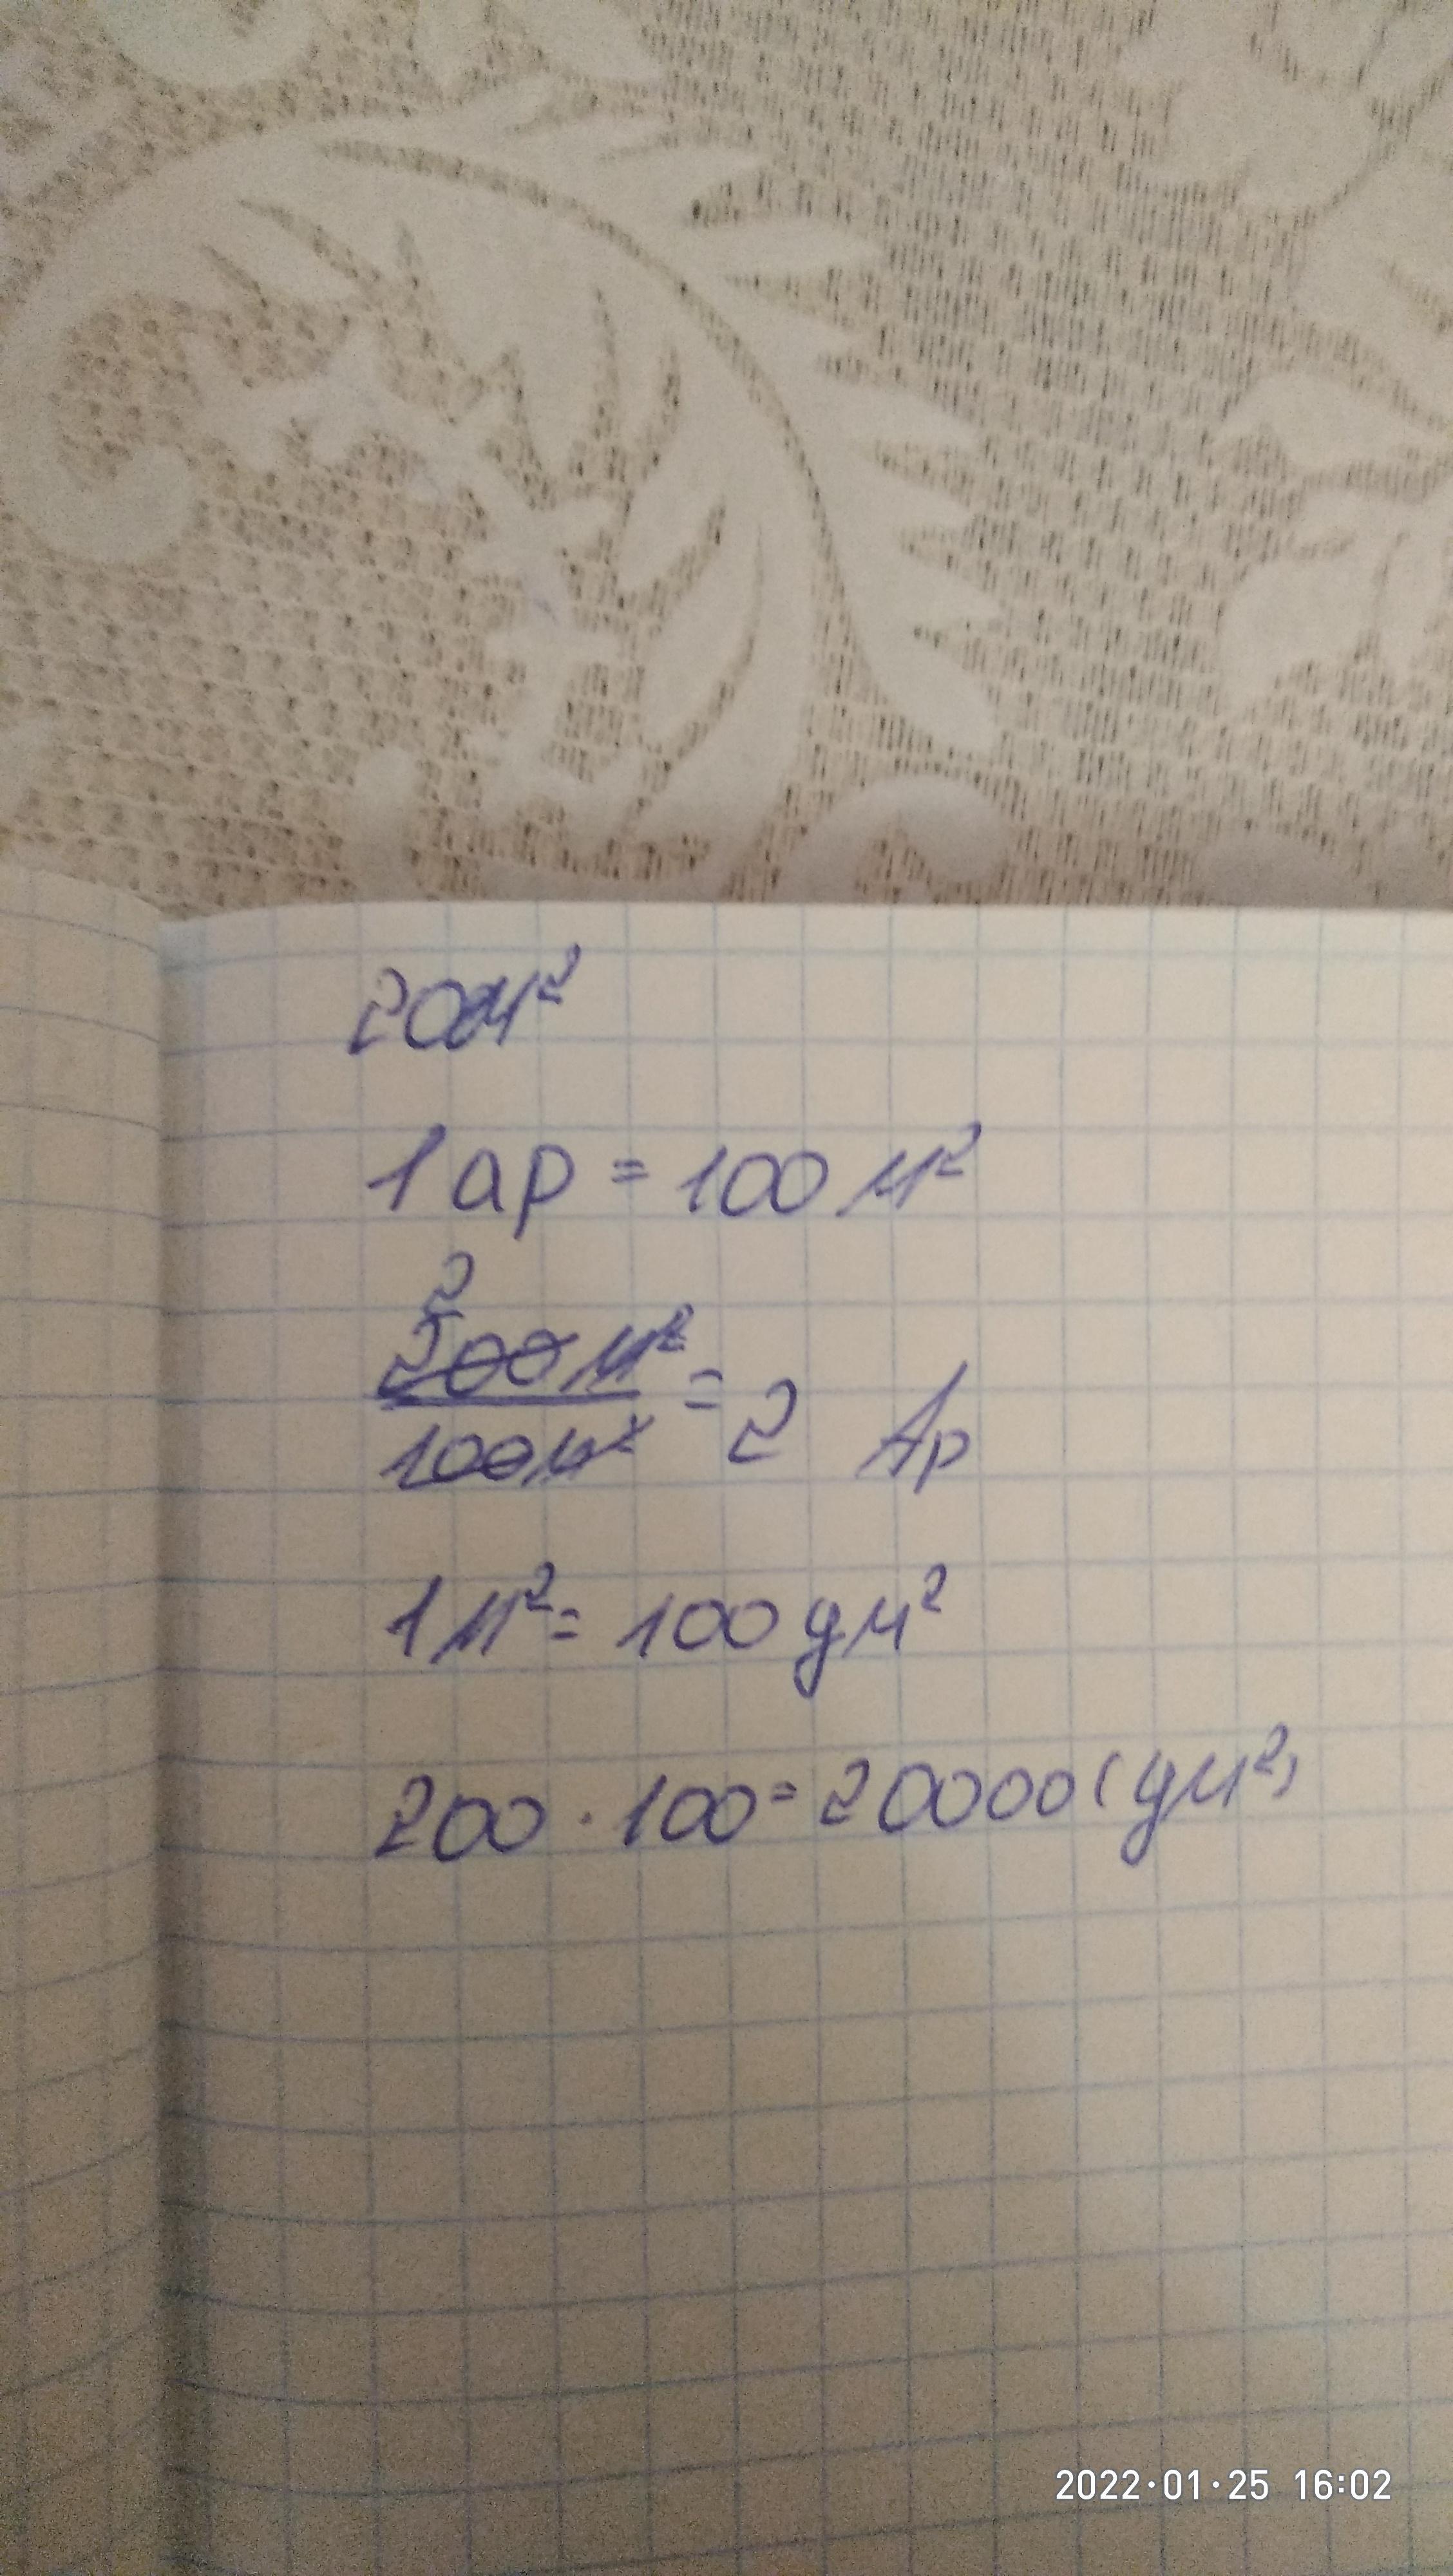 200м²
1 ар = 100 м²
2
200 м²
100 м² = 2 Ар
1 м² = 100 дм²
200 · 100 = 20000 (дм²)
2022·01·25 16:02